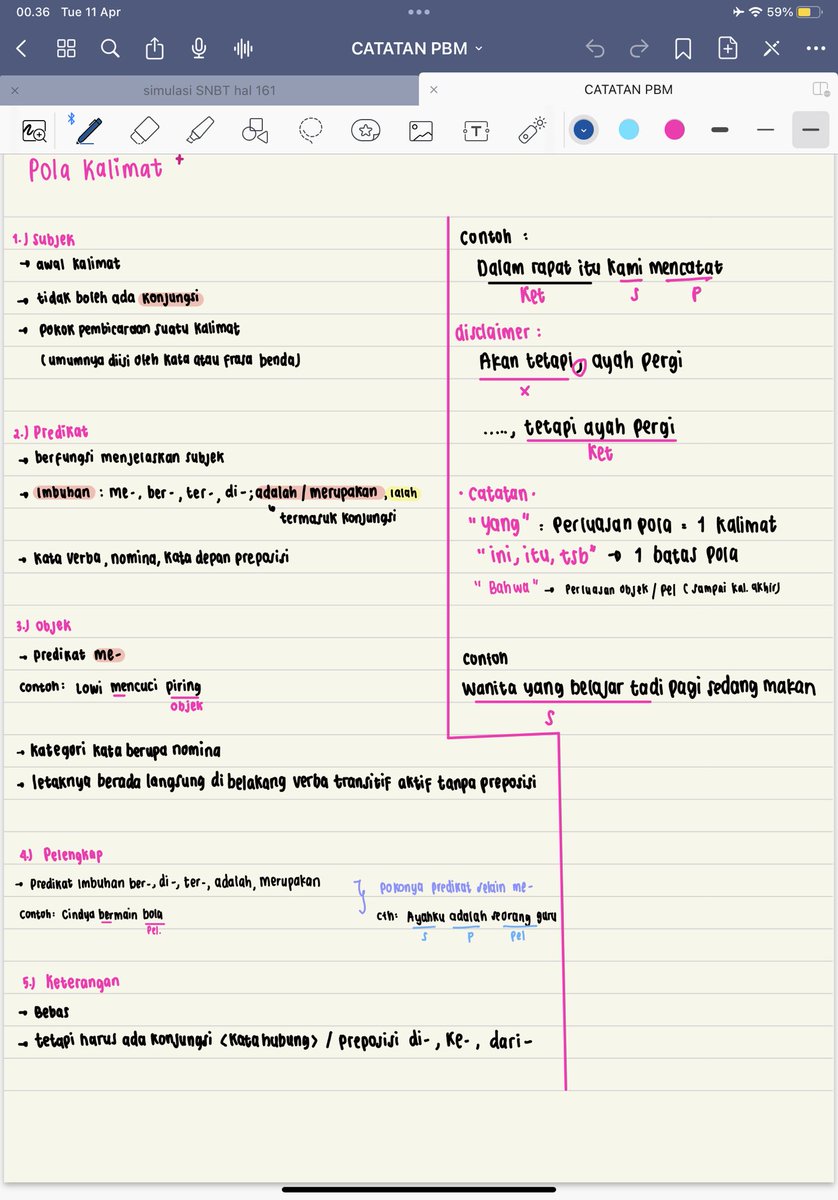 00.36 Tue 11 Apr
59%
CATATAN PBM
simulasi SNBT hal 161
CATATAN PBM
Pola Kalimat
1.) Subjek
→ awal kalimat
→ tidak boleh ada konjungsi
→ pokok pembicaraan suatu kalimat
(umumnya diisi oleh kata atau frasa benda)
2.) Predikat
→ berfungsi menjelaskan subjek
→ Imbuhan : me-, ber-, ter-, di-; adalah / merupakan, ialah
termasuk konjungsi
→ kata verba, nomina, kata depan preposisi
3.) Objek
→ Predikat me-
contoh: Lowi mencuci piring
objek
→ kategori kata berupa nomina
→ letaknya berada langsung di belakang verba transitif aktif tanpa preposisi
4.) Pelengkap
→ Predikat Imbuhan ber-, di-, ter-, adalah, merupakan
Contoh: Cindya bermain bola
Pel.
pokonya predikat selain me-
cth: Ayahku adalah seorang guru
S P Pel
5.) Keterangan
→ Bebas
→ tetapi harus ada konjungsi <kata hubung> / preposisi di-, ke-, dari-
Contoh :
Dalam rapat itu kami mencatat
Ket S P
disclaimer :
Akan tetapi, ayah pergi
x
....., tetapi ayah pergi
Ket
• Catatan •
"Yang" : Perluasan pola = 1 kalimat
"ini, itu, tsb" → 1 batas pola
"Bahwa" → Perluasan objek / pel (sampai kal. akhir)
contoh
Wanita yang belajar tadi pagi sedang makan
S